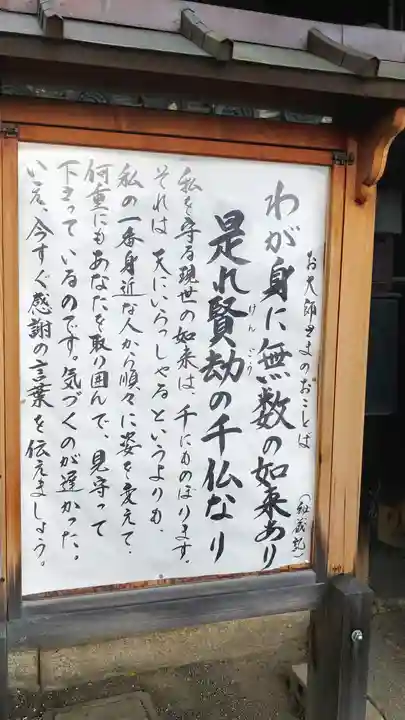 お大師さまのおことば
わが身に無数の如来あり
(秘蔵記)
是れ賢劫の千仏なり
けんごう
私を守る現世の如来は、千にものぼります。
それは天にいらっしゃるというよりも、
私の一番身近な人から順々に姿を変えて、
何重にもあなたを取り囲んで、見守って
下さっているのです。気づくのが遅かった。
いえ、今すぐ感謝の言葉を伝えましょう。